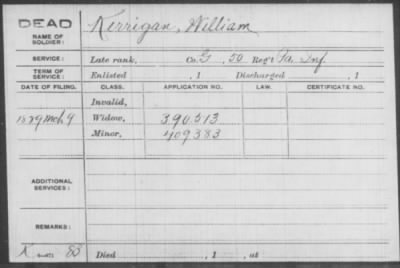 DEAD
NAME OF SOLDIER: Kerrigan, William
SERVICE: Late rank, Co. G, 50 Reg't Pa. Inf.
TERM OF SERVICE: Enlisted , 1 Discharged , 1
DATE OF FILING. CLASS. APPLICATION NO. LAW. CERTIFICATE NO.
Invalid,
1889 Mch 9 Widow, 390,313
Minor, 409,383
ADDITIONAL SERVICES:
REMARKS:
K 83 Died , 1 , at